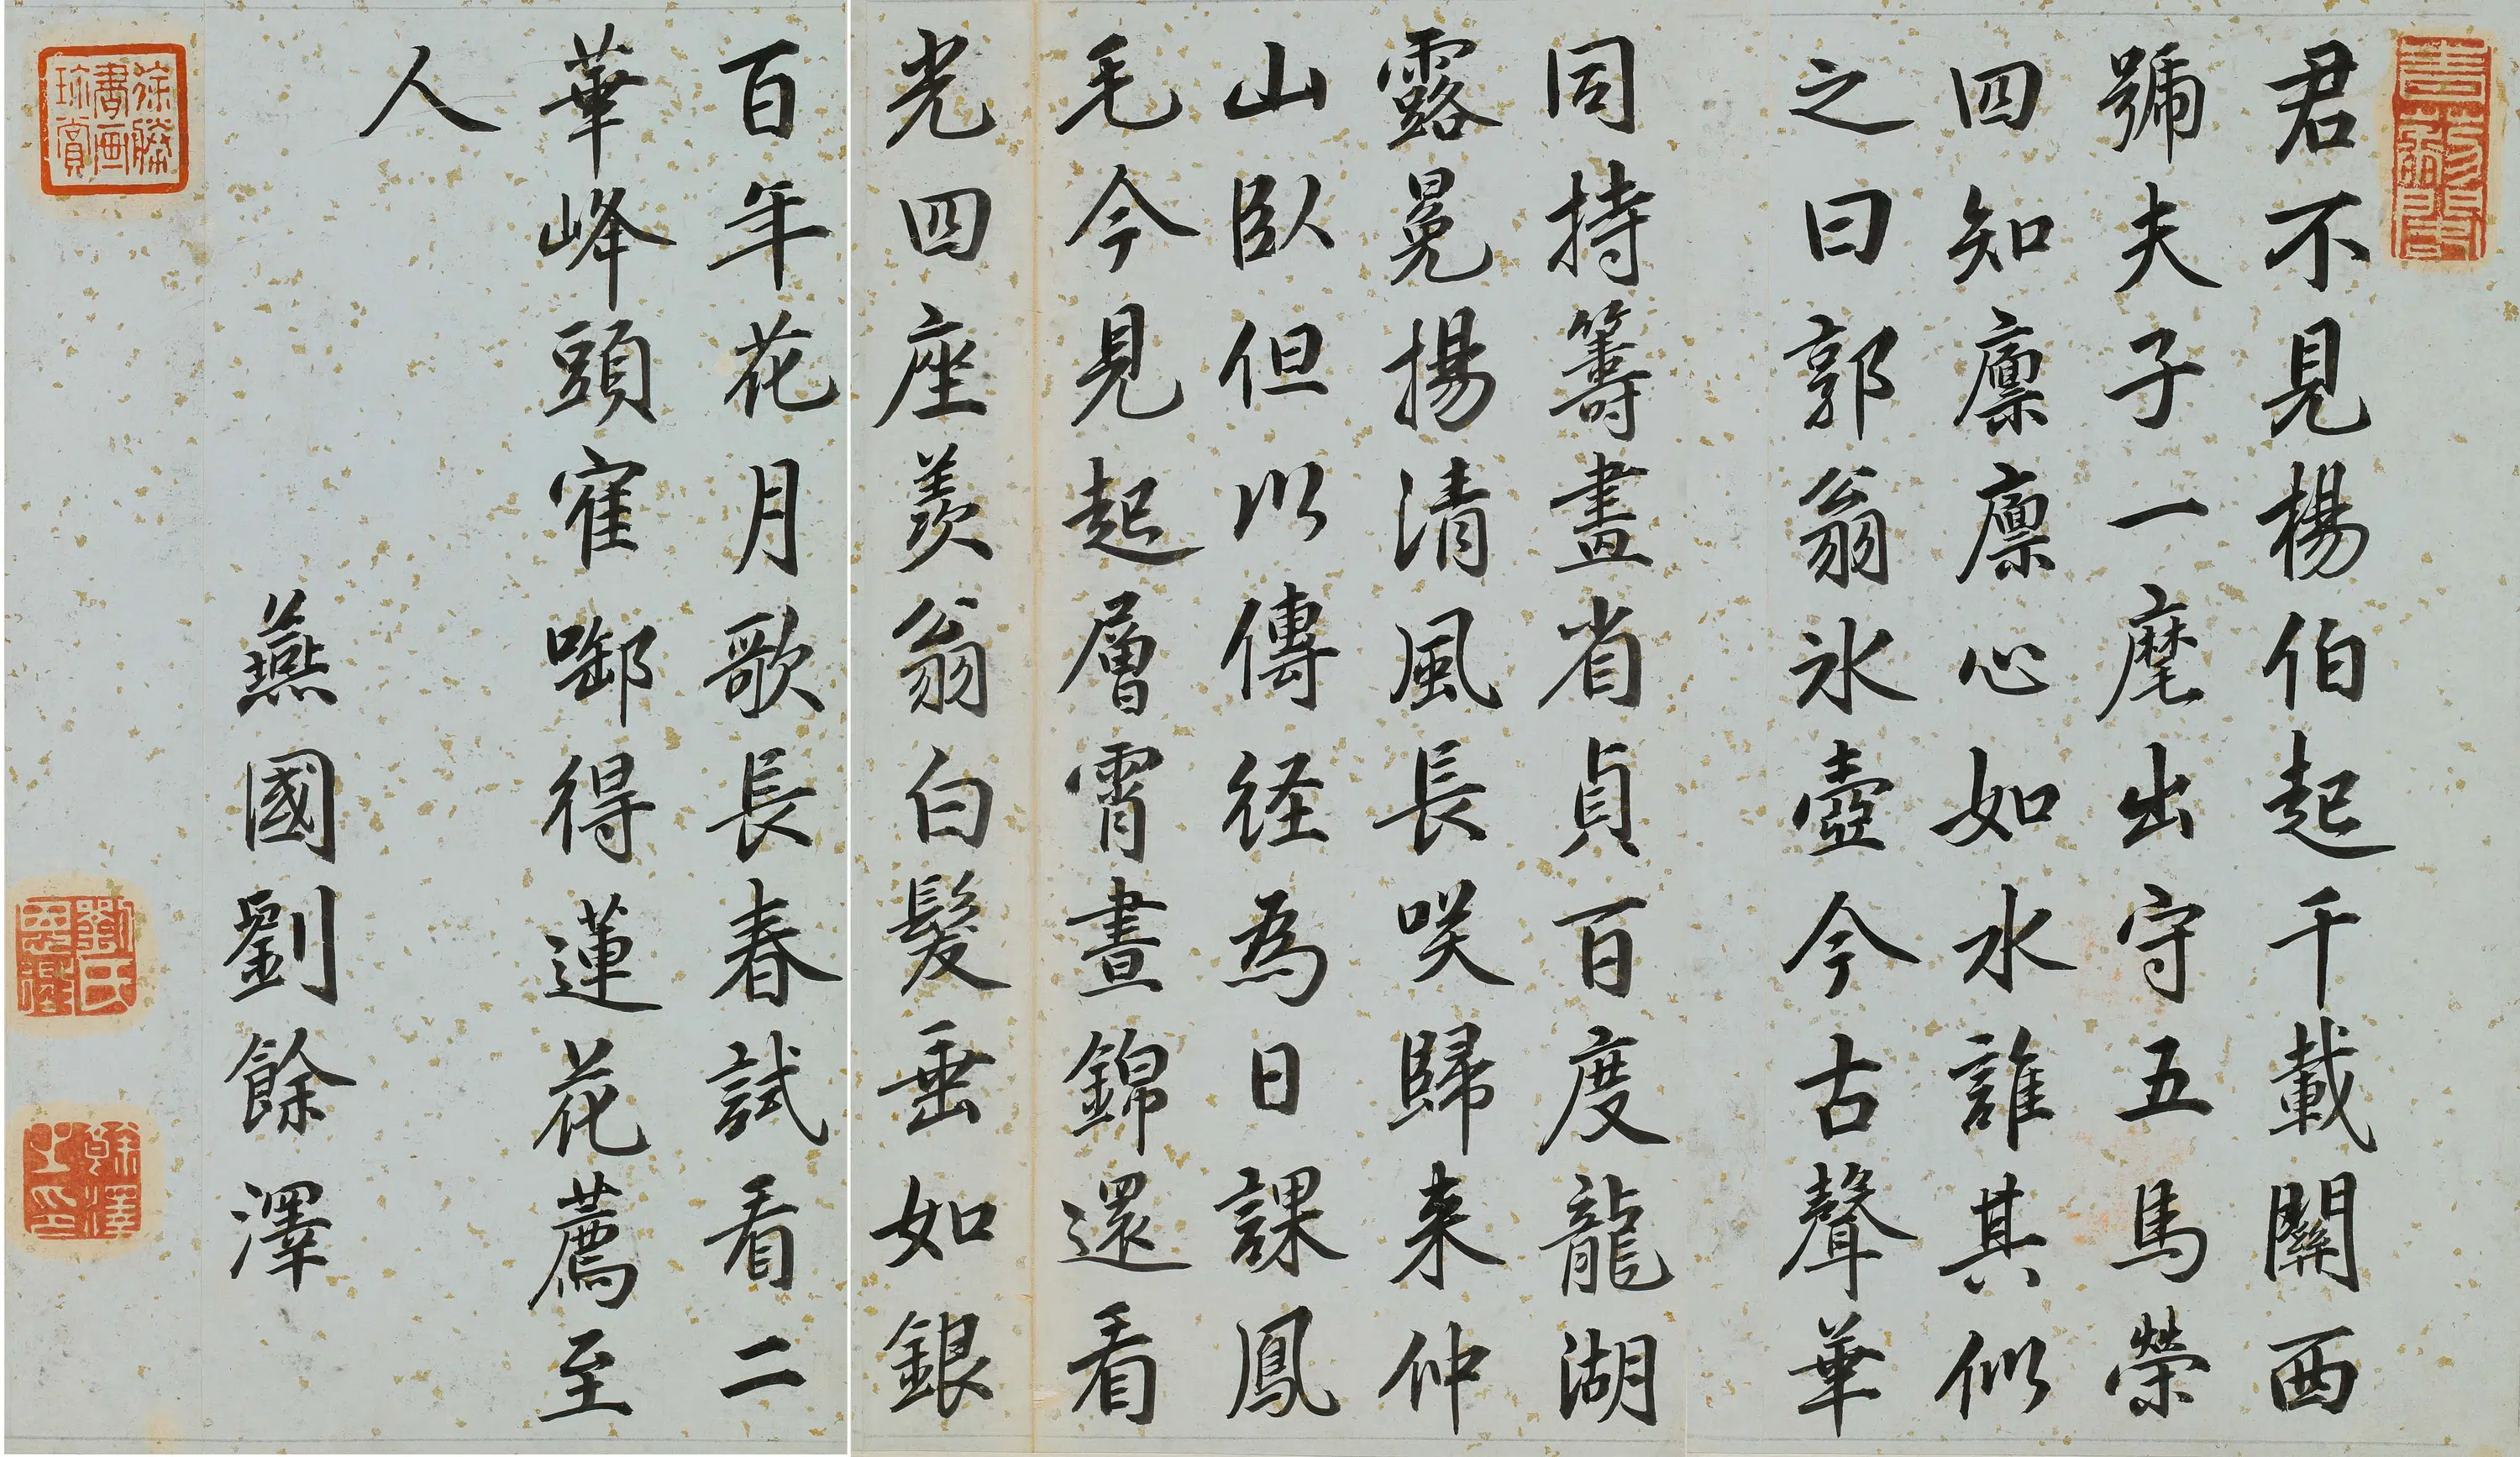 君不見楊伯起千載關西
號夫子一麾出守五馬榮
四知凜凜心如水誰其似
之曰郭翁氷壺今古聲華
同持籌畫省貞百度龍湖
露冕揚清風長咲歸来仲
山臥但以傳経為日課鳳
毛今見起層霄晝錦還看
光四座羨翁白髮垂如銀
百年花月歌長春試看二
華峰頭寉啣得蓮花薦至
人
燕國劉餘澤
徐勝
書画
珍賞
劉氏
餘澤
之印